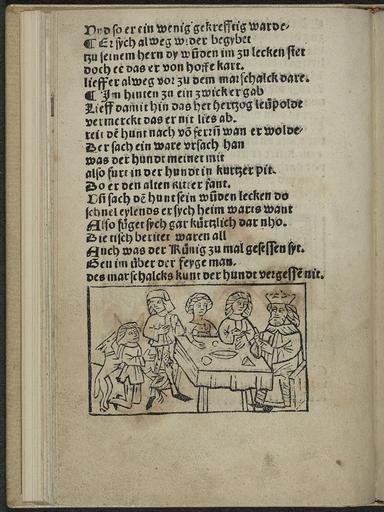 Vnd so er ein wenig gekrefftig warde
¶ Er sych alweg wider begybet
tzu seinem hern dy wūden im zu lecken stet
doch ee das er von hoffe kart.
lieff er alweg vor zu dem marschalck dare.
¶ Im hinten zu ein zwicker gab
Lieff damit hin das her hertzog leüpolde
vermerckt das er nit lies ab.
reit dē hunt nach vō ferrū wan er wolde
Der sach ein ware vrsach han
was der hundt meinet mit
also furt in der hundt in kurtzer pit.
Do er den alten ritter fant.
Vñ sach dē hunt sein wūden lecken do
schnel eylends er sych heim warts want
Also füget sych gar kürtzlich dar nho.
Die tisch bereitet waren all
Auch was der Künig zu mal gesessen syt.
Gen im über der feyge man.
des marschalcks kunt der hundt vergessē nit.